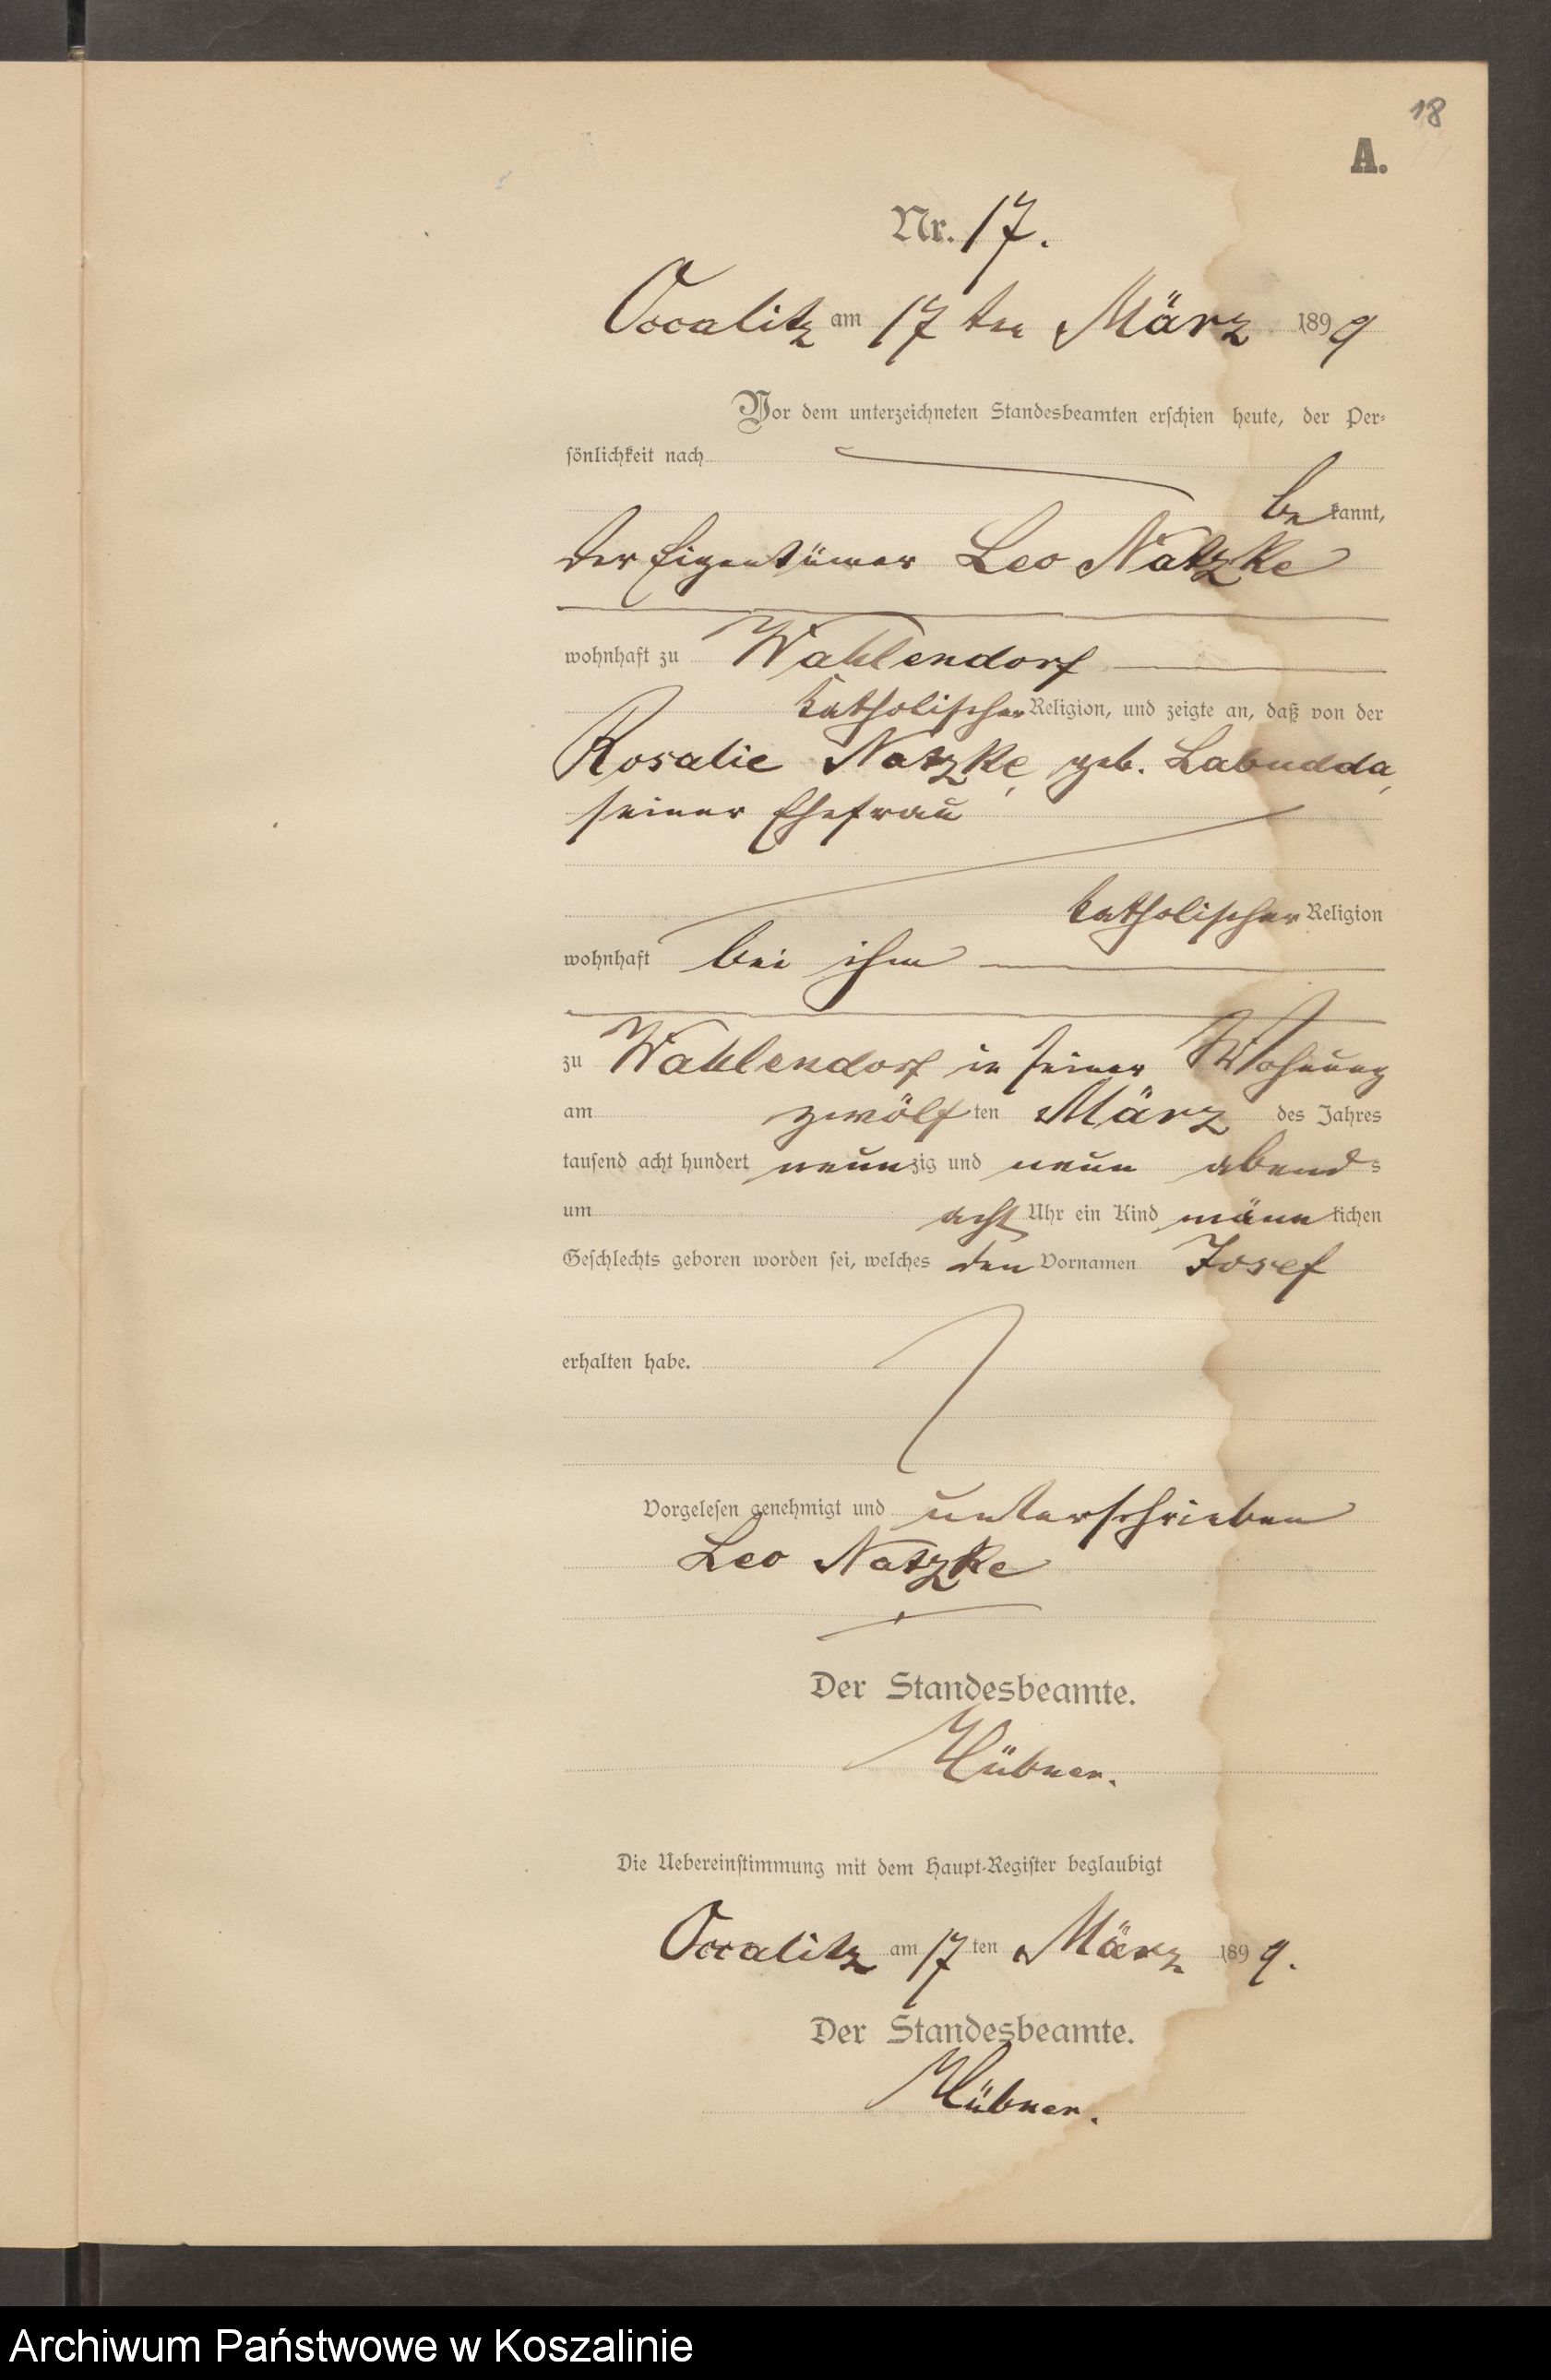 18
A.
Nr. 17.
Occalitz am 17 ten März 1899
Vor dem unterzeichneten Standesbeamten erschien heute, der Per-
sönlichkeit nach
be kannt,
der Eigentümer Leo Natzke
wohnhaft zu Wahlendorf
katholischer Religion, und zeigte an, daß von der
Rosalie Natzke, geb. Labudda,
seiner Ehefrau
katholischer Religion
wohnhaft bei ihm
zu Wahlendorf in seiner Wohnung
am zwölf ten März des Jahres
tausend acht hundert neunzig und neun abends
um acht Uhr ein Kind männlichen
Geschlechts geboren worden sei, welches den Vornamen Josef
erhalten habe.
Vorgelesen genehmigt und unterschrieben
Leo Natzke
Der Standesbeamte.
Hübner.
Die Uebereinstimmung mit dem Haupt-Register beglaubigt
Occalitz am 17 ten März 1899.
Der Standesbeamte.
Hübner.
Archiwum Państwowe w Koszalinie